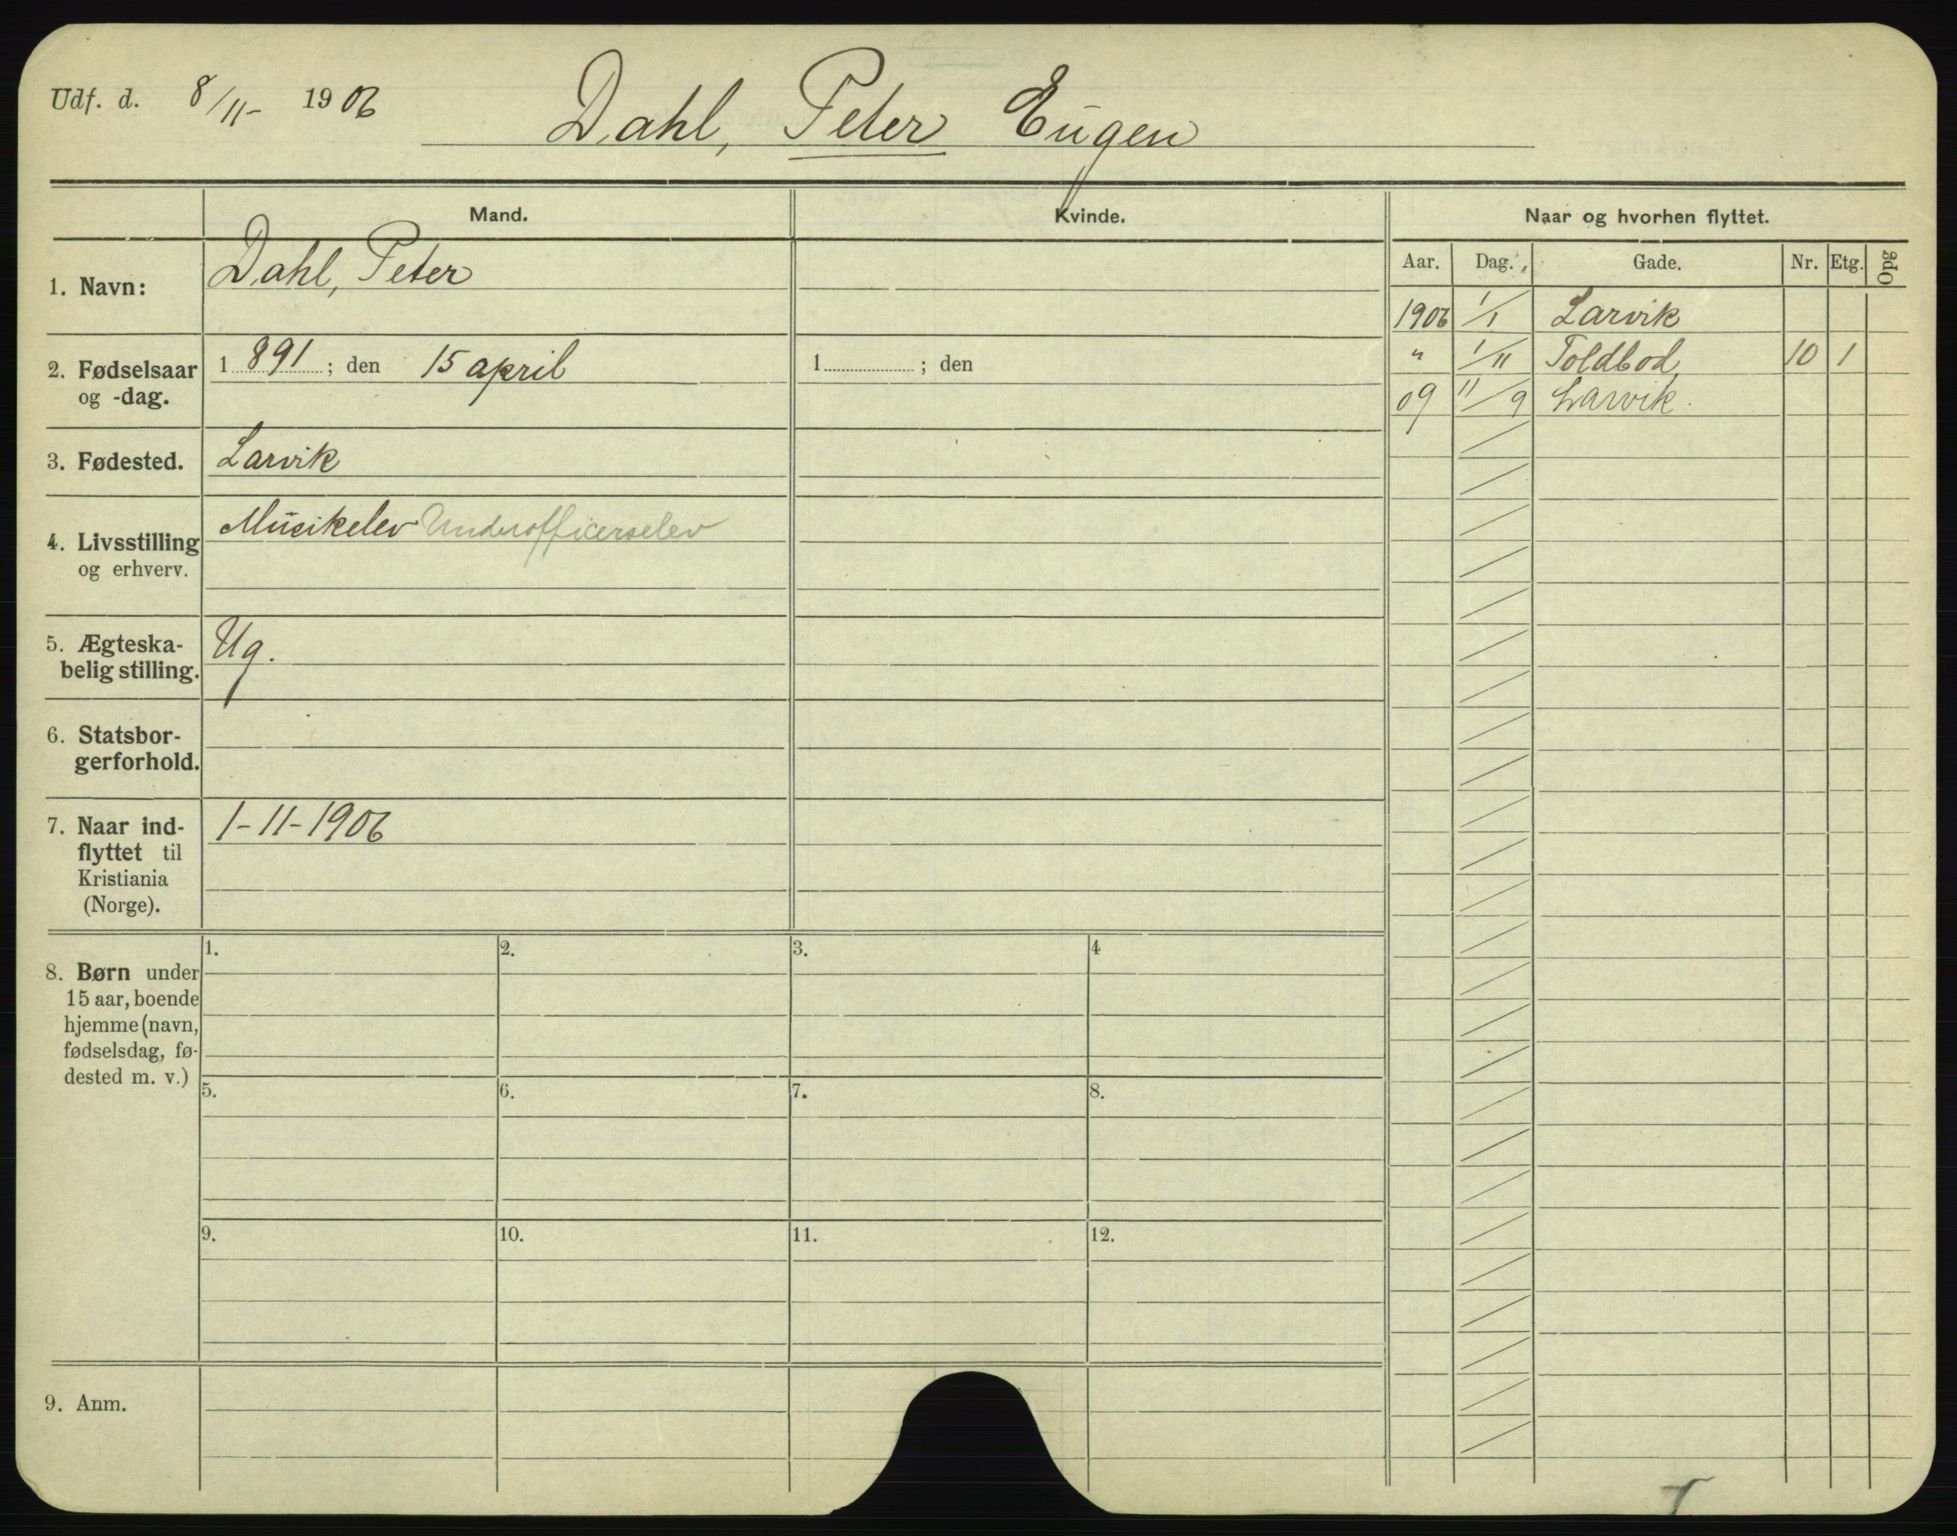 Udf. d. 8/11- 1906 Dahl, Peter Eugen
Mand. Kvinde. Naar og hvorhen flyttet.
Aar. Dag. Gade. Nr. Etg. Opg
1. Navn: Dahl, Peter
1906 1/1 Larvik
2. Fødselsaar 1891; den 15 april 1 ; den
og -dag.
" 1/11 Toldbod 10 1
09 11/9 Larvik.
3. Fødested. Larvik
4. Livsstilling Musikelev Underofficerselev
og erhverv.
5. Ægteska- Ug.
belig stilling.
6. Statsbor-
gerforhold.
7. Naar ind- 1-11-1906
flyttet til
Kristiania
(Norge).
8. Børn under 1. 2. 3. 4
15 aar, boende
hjemme (navn,
fødselsdag, fø-
dested m. v.)
5. 6. 7. 8.
9. 10. 11. 12.
9. Anm.